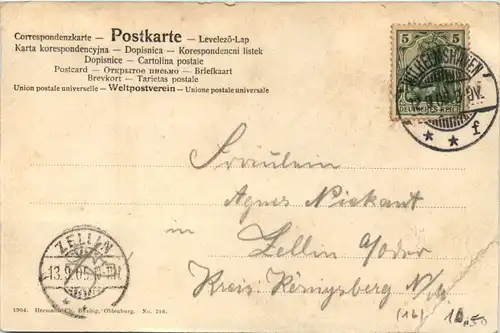 Correspondenzkarte — Postkarte — Levelező-Lap
Karta korespondencyjna — Dopisnica — Korespondencni listek
Dopisnice — Cartolina postale
Postcard — Открытое письмо — Briefkaart
Brevkort — Tarjetas postale
Union postale universelle — Weltpostverein — Unione postale universale
5 5
DEUTSCHES REICH
WILHELMSHAVEN
* * f
Fräulein
Agnes Niekant
in
Zellin a/oder
Kreis: Königsberg N/M
ZELLIN
13.9.05
1904. Hermann
Oldenburg. No. 216.
(16)